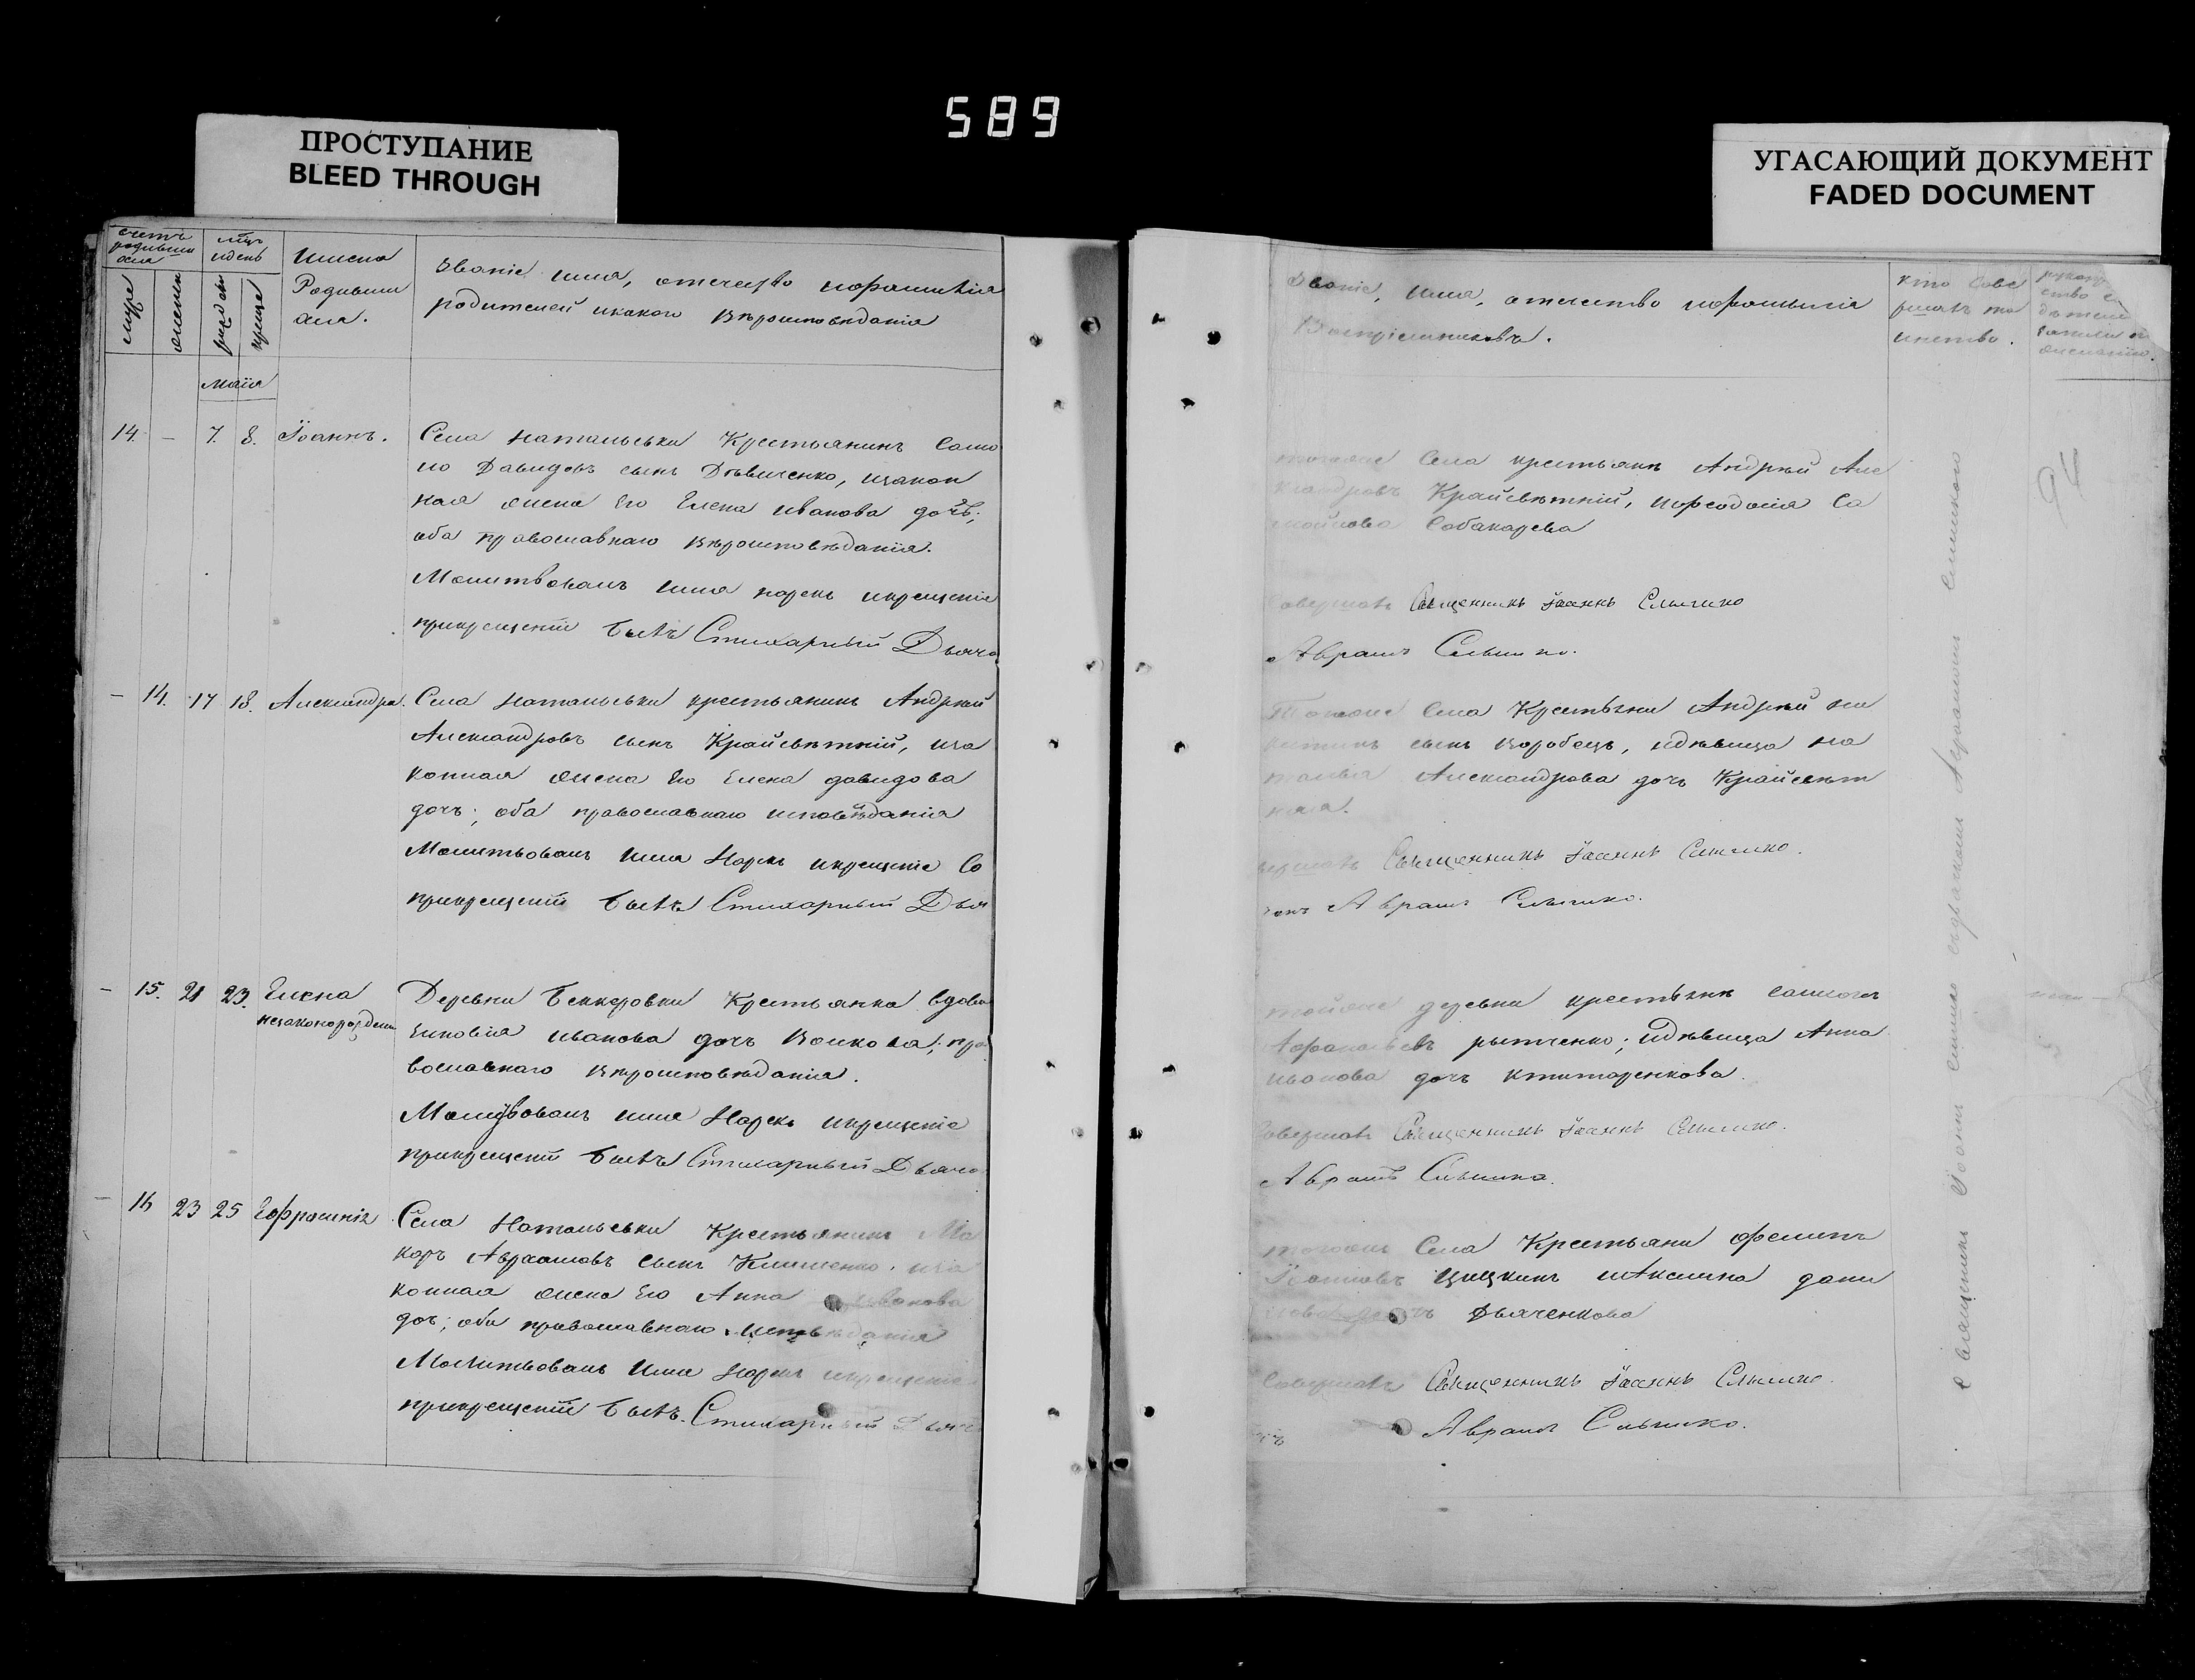 589
ПРОСТУПАНИЕ
BLEED THROUGH
УГАСАЮЩИЙ ДОКУМЕНТ
FADED DOCUMENT
счетъ родившихся
мѣсъ и день
Имена Родившихся.
Званіе имя, отечество и фамилія
родителей и какого вѣроисповѣданія
маія
14. – 7. 8. Іоаннъ.
Села Натальевки Крестьянинъ Само
ло Давидовъ сынъ Дѣвиченко, и закон
ная жена его Елена Иванова дочь;
оба православнаго вѣроисповѣданія.
Молитвовалъ имя нарекъ и крещеніе
прикрещеніи былъ Стихарный Дьячо
– 14. 17 18. Александра.
Села Натальевки крестьянинъ Андрей
Александровъ сынъ Крайсвѣтній, и за
конная жена его Елена Давидова
дочь; оба православнаго исповѣданія
Молитвовалъ имя Нарекъ и крещеніе Со
прикрещеніи былъ Стихарный Дья
– 15. 21 23. Елена
незаконорожден
Деревни Беккеровки Крестьянка вдова
Иванова дочь Волкова; пра
вославнаго вѣроисповѣданія.
Молитвовалъ имя Нарекъ и крещеніе
прикрещеніи былъ Стихарный Дьячо
– 16 23 25 Ефросинія
Села Натальевки Крестьянинъ Ма
каръ Авраамовъ сынъ Клименко, и за
конная жена его Анна Иванова
доч; оба православнаго исповѣданія
Молитвовалъ имя Нарекъ и крещеніе
прикрещеніи былъ Стихарный Дьяч
Званіе, имя, отечество и фамилія
Воспріемниковъ.
кто сове
ршалъ та
инство.
94
тогоже Села крестьянъ Андрей Але
ксандровъ Крайсвѣтній, и Феодосія Са
мойлова Собакарева
Совершалъ Священникъ Іоаннъ Слычко
Авраамъ Слычко.
Тогоже Села Крестьянинъ Андрей Ни
китинъ сынъ Воробецъ, и дѣвица На
талія Александрова дочь Крайсвѣт
няя.
вершалъ Священникъ Іоаннъ Слычко.
конъ Авраамъ Слычко.
тойже деревни крестьянинъ
дѣвица Анна
Иванова дочь Ктитаренкова.
Совершалъ Священникъ Іоаннъ Слычко.
Авраамъ Слычко.
тогоже Села Крестьянинъ Филипъ
Цицкинъ и Акилина Дани
лова дочь Дьяченкова
Совершалъ Священникъ Іоаннъ Слычко.
Авраамъ Слычко.